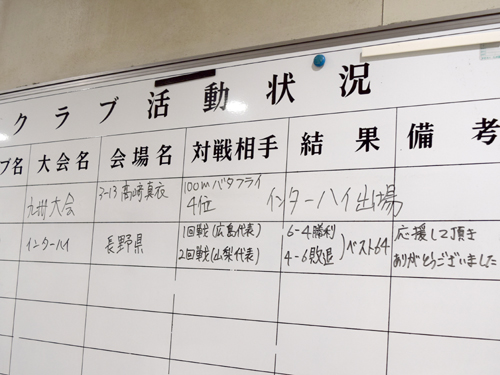 クラブ活動状況
ブ名 大会名 会場名 対戦相手 結果 備考
九州大会 3-13 髙崎真衣 100mバタフライ
4位 インターハイ出場
インターハイ 長野県 1回戦(広島代表) 6-4勝利 ベスト64 応援して頂き
2回戦(山梨代表) 4-6敗退 ありがとうございました